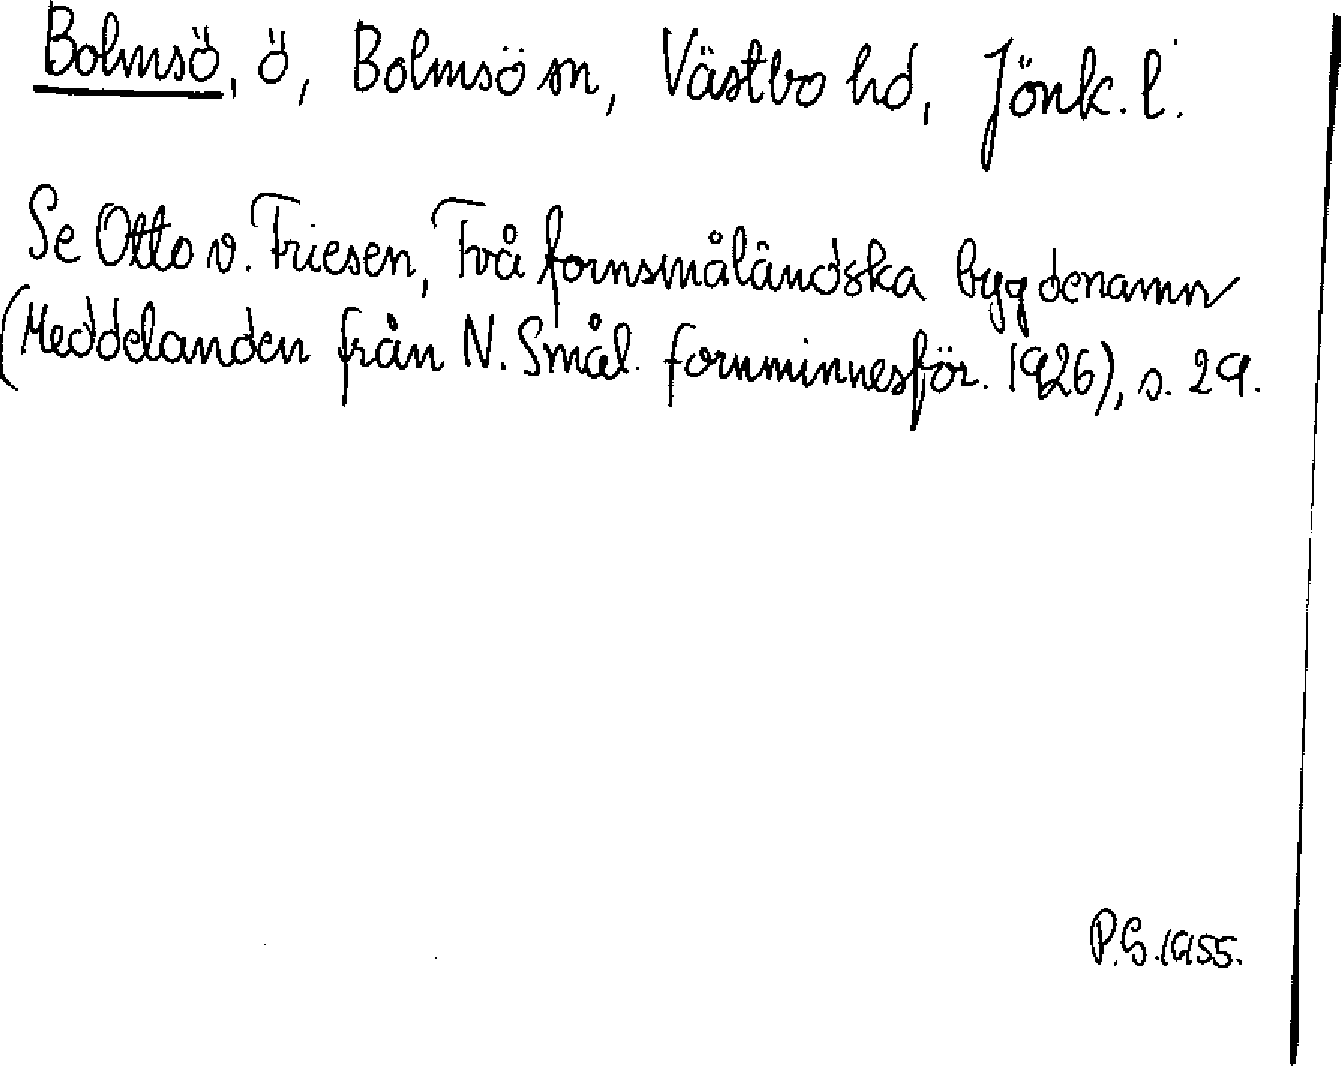 Bolmsö, ö, Bolmsö sn, Västbo hd, Jönk. l.
Se Otto v. Friesen, Två fornsmåländska bygdenamn
(Meddelanden från N. Smål. fornminnesför. 1926), s. 29.
P.G. 1955.